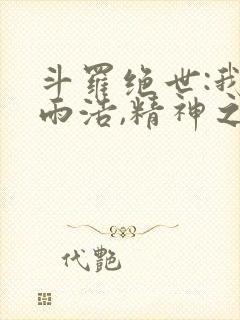 斗罗绝世:我
雨浩,精神之
代艷